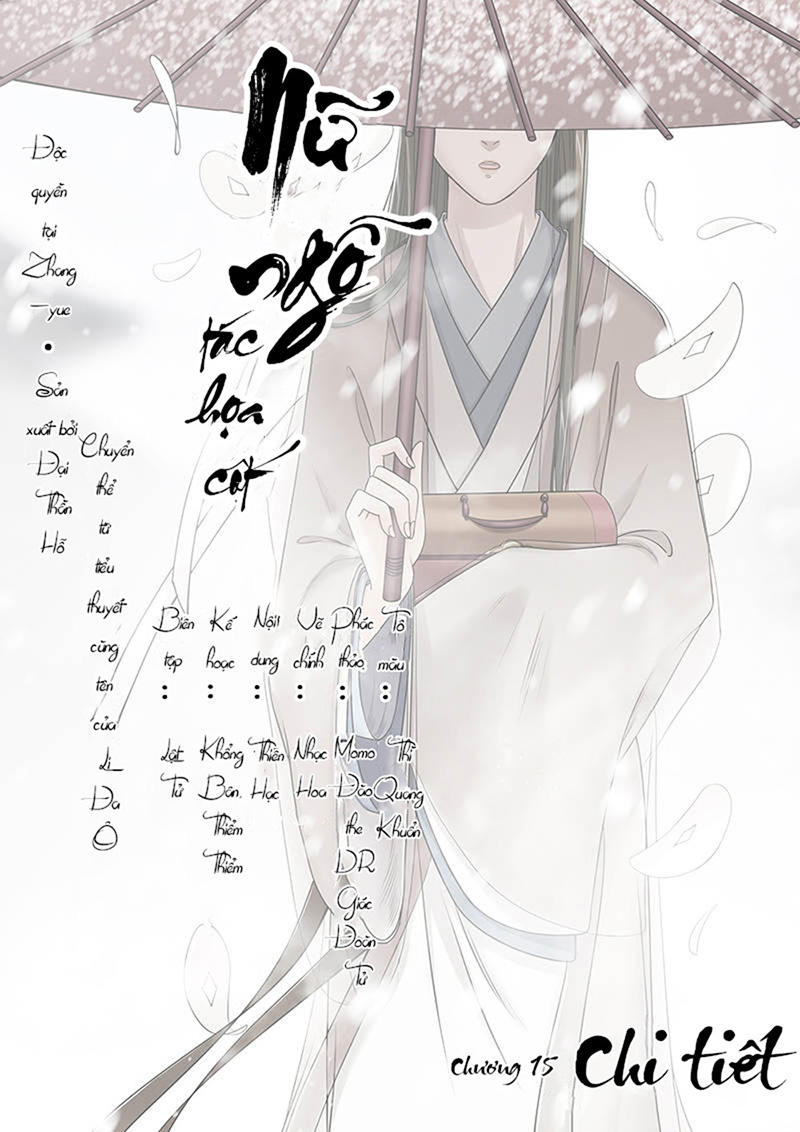 Nữ
ngỗ
tác
họa
cốt
Độc
quyền
tại
Zhang
–yue
•
Sản
xuất bởi
Đại
Thần
Hỗ
Chuyển
thể
từ
tiểu
thuyết
cùng
tên
của
Li
Đa
Ô
Biên
tập
:
Lật
Tử
Kế
hoạc
:
Khổng
Bân.
Thiểm
Thiểm
Nội!
dung
:
Thiền
Hạc
Vẽ
chính
:
Nhạc
Hoa
Phác
thảo.
:
Momo
Đào
the
DR
Giác
Đoàn
Tử
Tô
màu
:
Thì
Quang
Khuẩn
Chương 15
Chi tiết